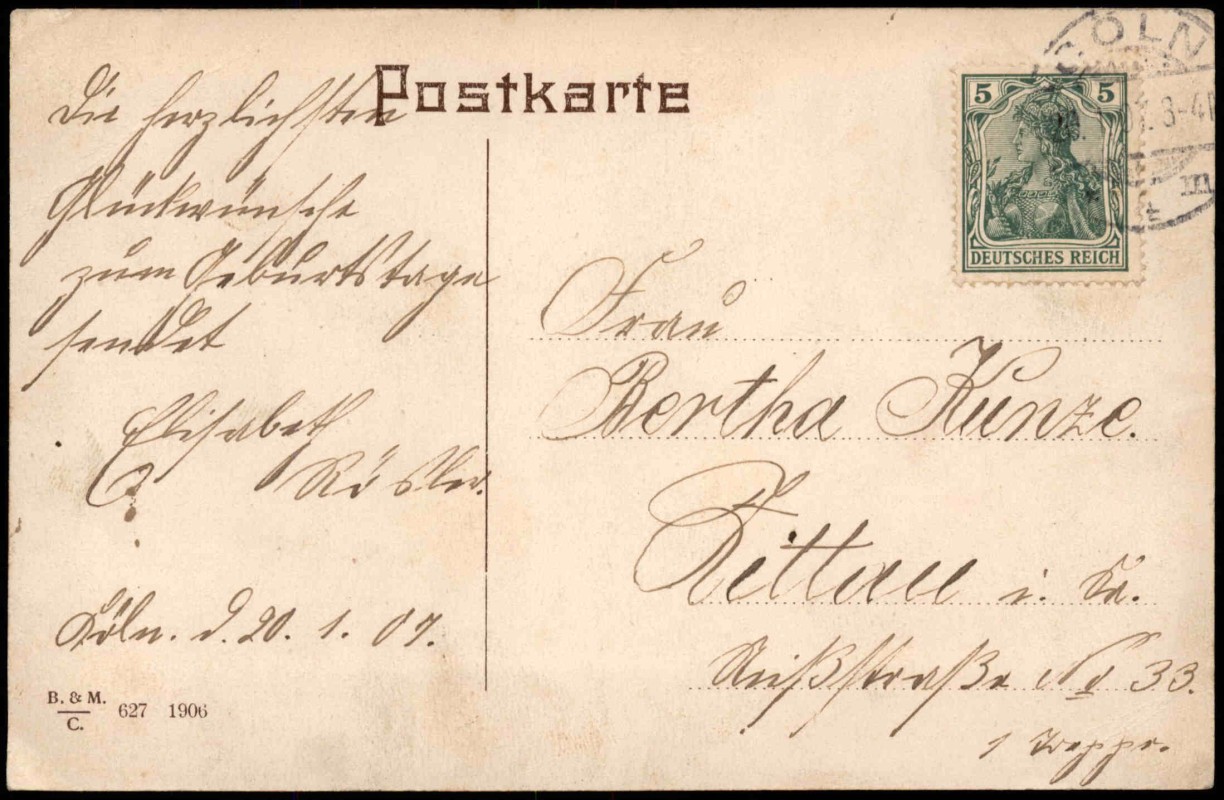 Postkarte
Die herzlichsten
Glückwünsche
zum Geburtstage
sendet
Elisabeth
Rösler.
Cöln. d. 20. 1. 07.
B. & M.
C.
627 1906
5 5
DEUTSCHES REICH
CÖLN
3-4
Frau
Bertha Kunze.
Zittau i. Sa.
Neißstraße No 33.
1 Treppe.